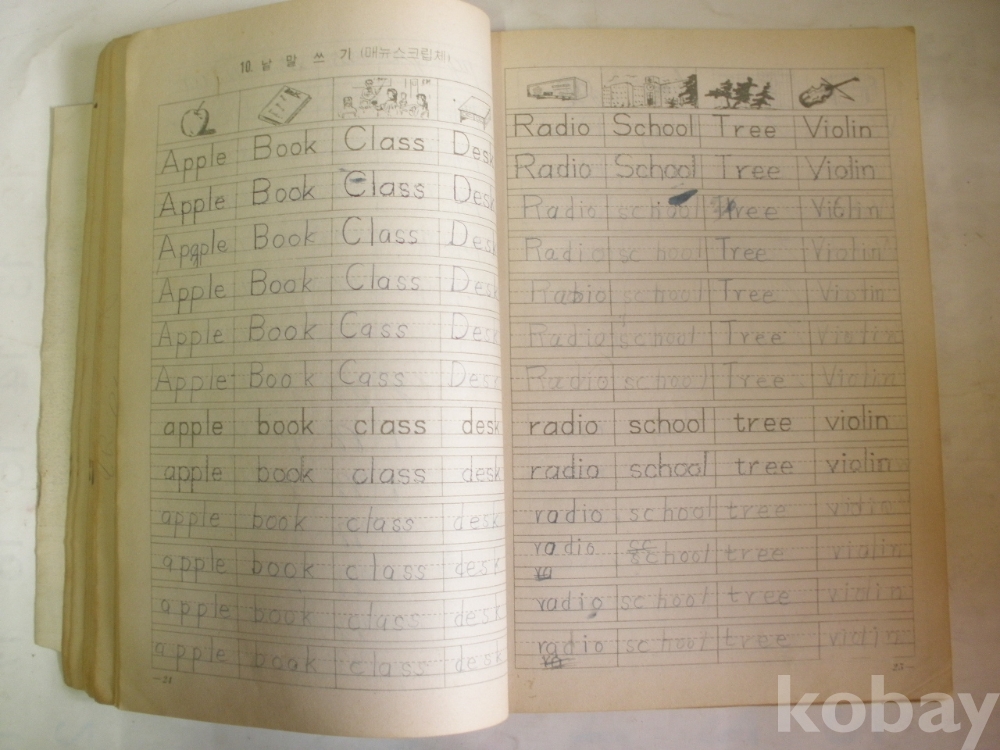 10. 낱 말 쓰 기 (매뉴스크립체)
Apple Book Class Desk
Apple Book Class Desk
Apple Book Class Desk
Apple Book Class Desk
Apple Book Cass Desk
Apple Book Cass Desk
apple book class desk
apple book class desk
apple book class desk
apple book class desk
apple book class desk
apple book class desk
Radio School Tree Violin
Radio School Tree Violin
Radio school Tree Violin
Radio school Tree Violin
Radio school Tree Violin
Radio school Tree Violin
Radio school Tree Violin
radio school tree violin
radio school tree violin
radio school tree violin
radio school tree violin
radio school tree violin
radio school tree violin
kobay